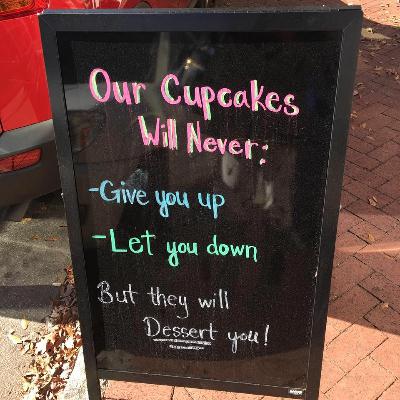 Our Cupcakes
Will Never:
-Give you up
-Let you down
But they will
Dessert you!